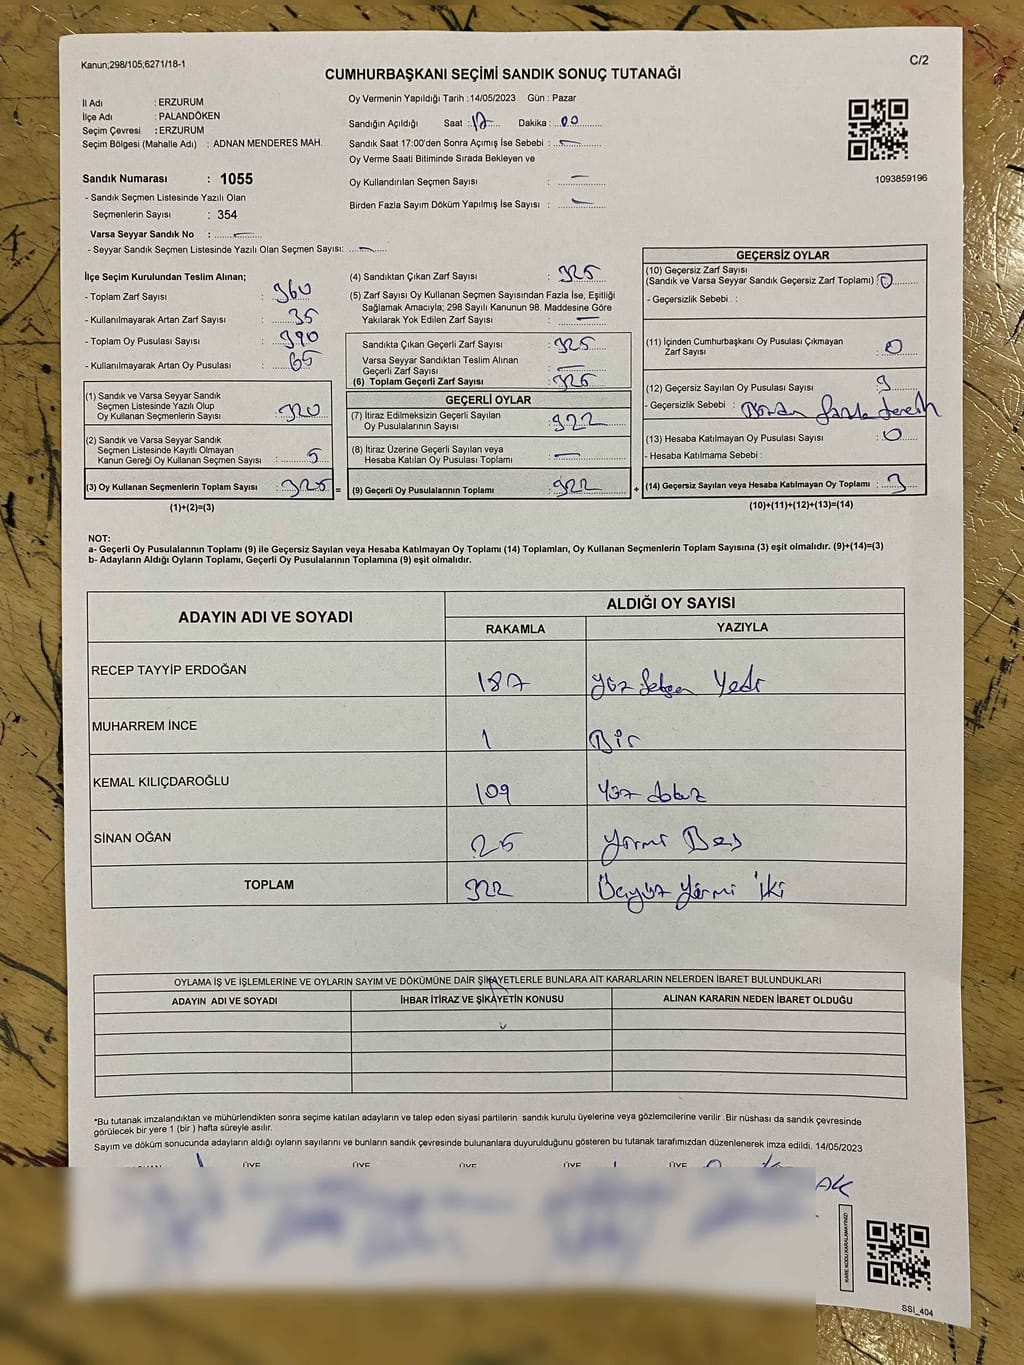 Kanun;298/105;6271/18-1
C/2
CUMHURBAŞKANI SEÇİMİ SANDIK SONUÇ TUTANAĞI
İl Adı : ERZURUM
İlçe Adı : PALANDÖKEN
Seçim Çevresi : ERZURUM
Seçim Bölgesi (Mahalle Adı) : ADNAN MENDERES MAH.
Sandık Numarası : 1055
- Sandık Seçmen Listesinde Yazılı Olan
Seçmenlerin Sayısı : 354
Varsa Seyyar Sandık No : —
- Seyyar Sandık Seçmen Listesinde Yazılı Olan Seçmen Sayısı: —
Oy Vermenin Yapıldığı Tarih : 14/05/2023 Gün : Pazar
Sandığın Açıldığı Saat : 17 Dakika : 00
Sandık Saat 17:00'den Sonra Açımış İse Sebebi : —
Oy Verme Saati Bitiminde Sırada Bekleyen ve
Oy Kullandırılan Seçmen Sayısı : —
Birden Fazla Sayım Döküm Yapılmış İse Sayısı : —
1093859196
İlçe Seçim Kurulundan Teslim Alınan;
- Toplam Zarf Sayısı : 360
- Kullanılmayarak Artan Zarf Sayısı : 35
- Toplam Oy Pusulası Sayısı : 390
- Kullanılmayarak Artan Oy Pusulası : 65
(1) Sandık ve Varsa Seyyar Sandık
Seçmen Listesinde Yazılı Olup
Oy Kullanan Seçmenlerin Sayısı : 320
(2) Sandık ve Varsa Seyyar Sandık
Seçmen Listesinde Kayıtlı Olmayan
Kanun Gereği Oy Kullanan Seçmen Sayısı : 5
(3) Oy Kullanan Seçmenlerin Toplam Sayısı : 325 =
(1)+(2)=(3)
(4) Sandıktan Çıkan Zarf Sayısı : 325
(5) Zarf Sayısı Oy Kullanan Seçmen Sayısından Fazla İse, Eşitliği
Sağlamak Amacıyla; 298 Sayılı Kanunun 98. Maddesine Göre
Yakılarak Yok Edilen Zarf Sayısı : —
Sandıkta Çıkan Geçerli Zarf Sayısı : 325
Varsa Seyyar Sandıktan Teslim Alınan
Geçerli Zarf Sayısı : —
(6) Toplam Geçerli Zarf Sayısı : 325
GEÇERLİ OYLAR
(7) İtiraz Edilmeksizin Geçerli Sayılan
Oy Pusulalarının Sayısı : 322
(8) İtiraz Üzerine Geçerli Sayılan veya
Hesaba Katılan Oy Pusulası Toplamı : —
(9) Geçerli Oy Pusulalarının Toplamı : 322 +
GEÇERSİZ OYLAR
(10) Geçersiz Zarf Sayısı
(Sandık ve Varsa Seyyar Sandık Geçersiz Zarf Toplamı) : 0
- Geçersizlik Sebebi :
(11) İçinden Cumhurbaşkanı Oy Pusulası Çıkmayan
Zarf Sayısı : 0
(12) Geçersiz Sayılan Oy Pusulası Sayısı : 3
- Geçersizlik Sebebi : Birden fazla tercih
(13) Hesaba Katılmayan Oy Pusulası Sayısı : 0
- Hesaba Katılmama Sebebi :
(14) Geçersiz Sayılan veya Hesaba Katılmayan Oy Toplamı : 3
(10)+(11)+(12)+(13)=(14)
NOT:
a- Geçerli Oy Pusulalarının Toplamı (9) ile Geçersiz Sayılan veya Hesaba Katılmayan Oy Toplamı (14) Toplamları, Oy Kullanan Seçmenlerin Toplam Sayısına (3) eşit olmalıdır. (9)+(14)=(3)
b- Adayların Aldığı Oyların Toplamı, Geçerli Oy Pusulalarının Toplamına (9) eşit olmalıdır.
ADAYIN ADI VE SOYADI
ALDIĞI OY SAYISI
RAKAMLA YAZIYLA
RECEP TAYYİP ERDOĞAN 187 Yüz Seksen Yedi
MUHARREM İNCE 1 Bir
KEMAL KILIÇDAROĞLU 109 Yüz dokuz
SİNAN OĞAN 25 Yirmi Beş
TOPLAM 322 Üçyüz Yirmi İki
OYLAMA İŞ VE İŞLEMLERİNE VE OYLARIN SAYIM VE DÖKÜMÜNE DAİR ŞİKAYETLERLE BUNLARA AİT KARARLARIN NELERDEN İBARET BULUNDUKLARI
ADAYIN ADI VE SOYADI İHBAR İTİRAZ VE ŞİKAYETİN KONUSU ALINAN KARARIN NEDEN İBARET OLDUĞU
*Bu tutanak imzalandıktan ve mühürlendikten sonra seçime katılan adayların ve talep eden siyasi partilerin sandık kurulu üyelerine veya gözlemcilerine verilir .Bir nüshası da sandık çevresinde
görülecek bir yere 1 (bir ) hafta süreyle asılır.
Sayım ve döküm sonucunda adayların aldığı oyların sayılarını ve bunların sandık çevresinde bulunanlara duyurulduğunu gösteren bu tutanak tarafımızdan düzenlenerek imza edildi. 14/05/2023
ÜYE ÜYE ÜYE ÜYE ÜYE
KARE KODU KARALAMAYINIZ!
SSI_404